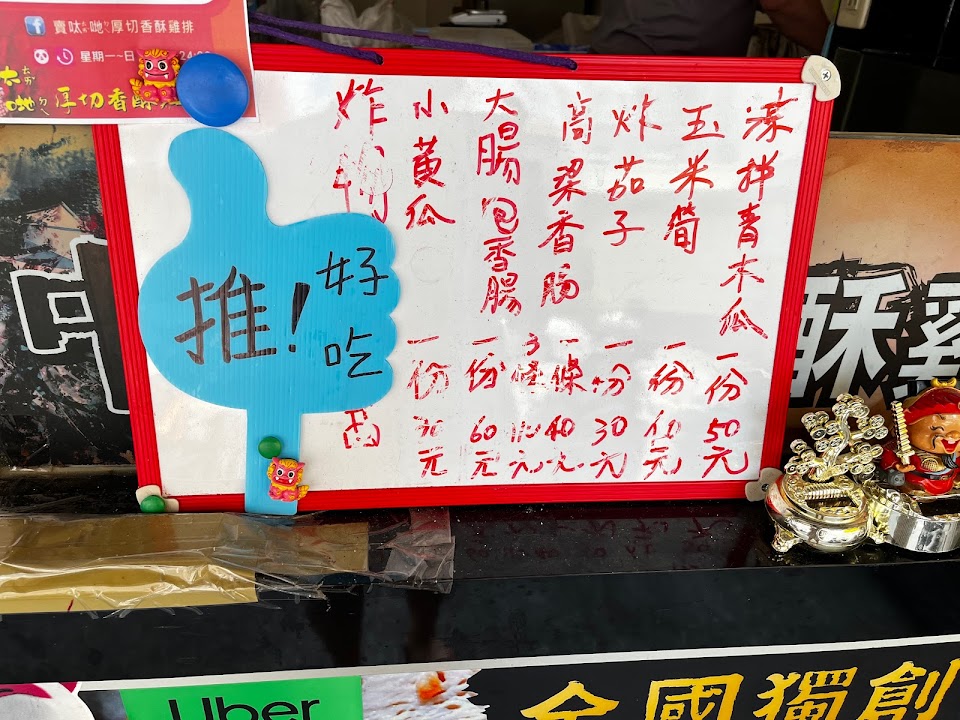 賣呔哋厚切香酥雞排
星期一~日
哋厚切香酥
涼拌青木瓜 一份 50元
玉米筍 一份 40元
炸茄子 一份 30元
高粱香腸 一條 40元 3條 110元
大腸包香腸 一份 60元
小黃瓜 一份 30元
炸
推!
好吃
酥雞
Uber
全國獨創